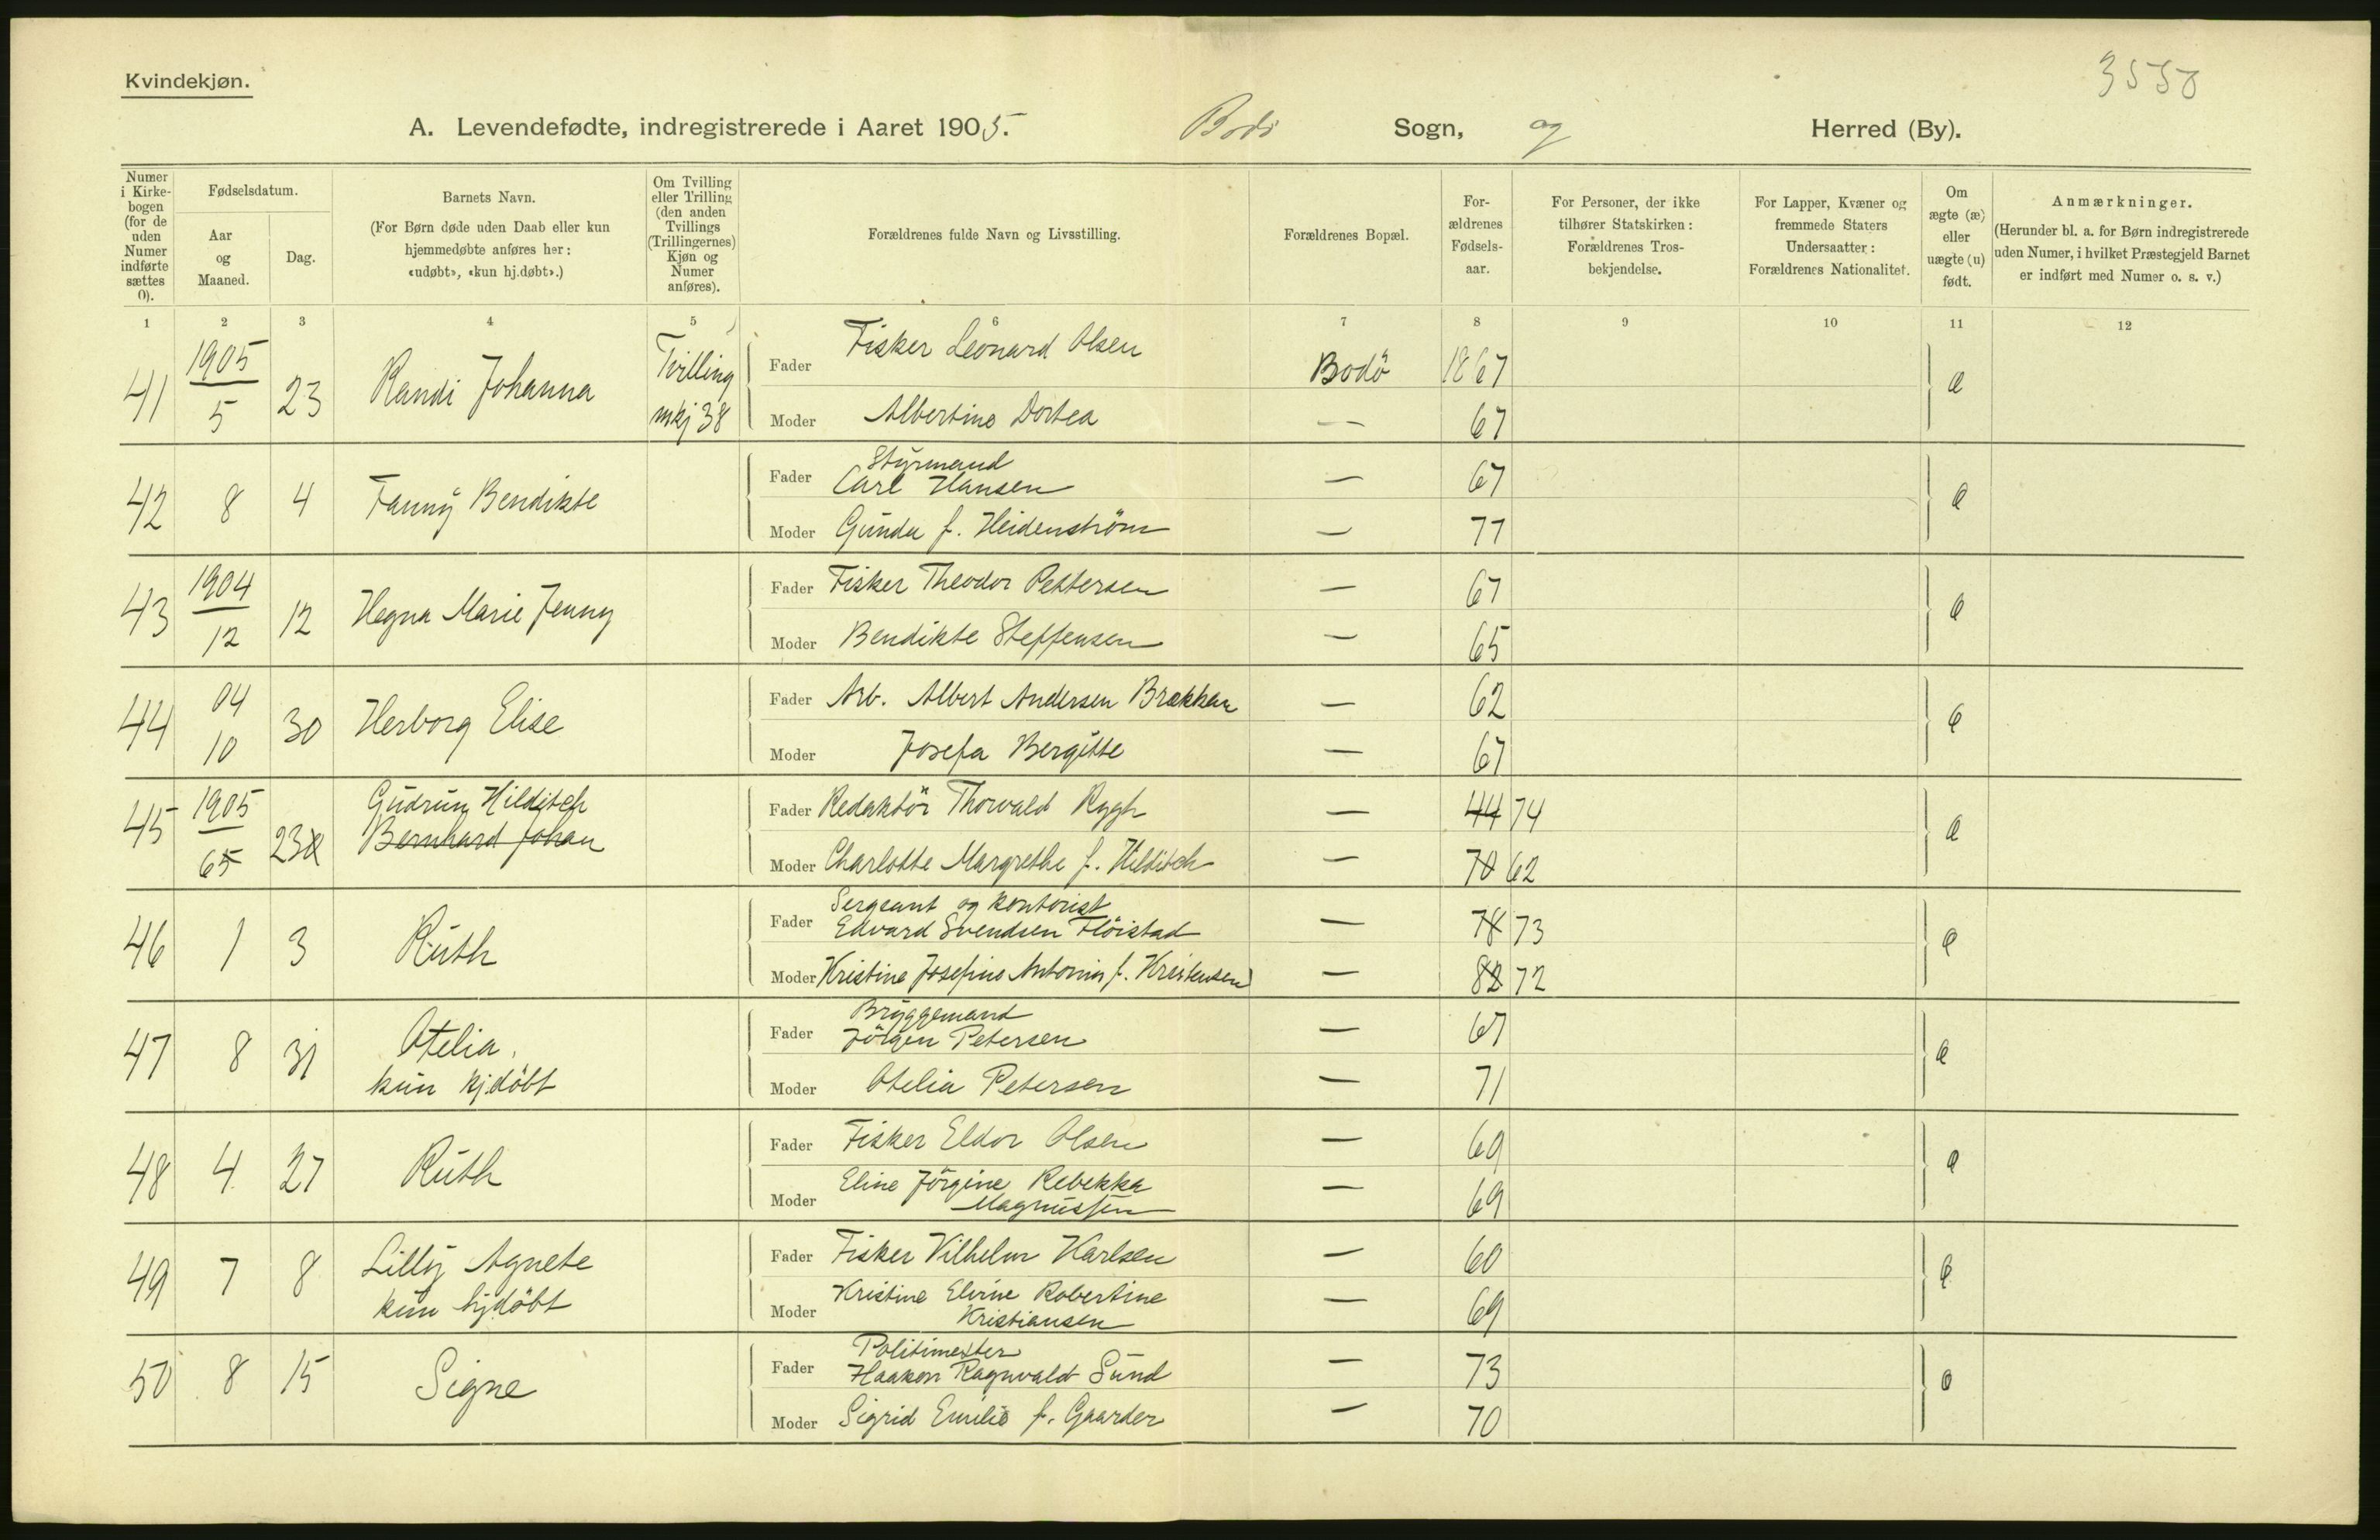 Kvindekjøn.
3550
A. Levendefødte, indregistrerede i Aaret 1905. Bodö Sogn, og Herred (By).
Numer i Kirkebogen (for de uden Numer indførte sættes 0).
Fødselsdatum.
Aar og Maaned.
Dag.
Barnets Navn.
(For Børn døde uden Daab eller kun hjemmedøbte anføres her: «udøbt», «kun hj.døbt».)
Om Tvilling eller Trilling (den anden Tvillings (Trillingernes) Kjøn og Numer anføres).
Forældrenes fulde Navn og Livsstilling.
Forældrenes Bopæl.
Forældrenes Fødselsaar.
For Personer, der ikke tilhører Statskirken: Forældrenes Trosbekjendelse.
For Lapper, Kvæner og fremmede Staters Undersaatter: Forældrenes Nationalitet.
Om ægte (æ) eller uægte (u) født.
Anmærkninger.
(Herunder bl. a. for Børn indregistrerede uden Numer, i hvilket Præstegjeld Barnet er indført med Numer o. s. v.)
1 2 3 4 5 6 7 8 9 10 11 12
41 1905 5 23 Randi Johanna Tvilling mkj 38 Fader Fisker Leonard Olsen Bodö 1867 æ
Moder Albertine Dortea — 67
42 8 4 Fanny Bendikte Fader Styrmand Carl Hansen — 67 æ
Moder Gunda f. Heidenström — 77
43 1904 12 12 Hegna Marie Jenny Fader Fisker Theodor Pettersen — 67 æ
Moder Bendikte Steffensen — 65
44 04 10 30 Herborg Elise Fader Arb. Albert Andersen Brækkan — 62 æ
Moder Josefa Bergitte — 67
45 1905 65 23 Gudrun Hilditch Bernhard Johan Fader Redaktör Thorvald Rygh — 44 74 æ
Moder Charlotte Margrethe f. Hilditch — 70 62
46 1 3 Ruth Fader Sergeant og kontorist Edvard Svendsen Flöistad — 78 73 æ
Moder Kristine Josefine Antonin f. Kristensen — 82 72
47 8 31 Otelia kun hj.döbt Fader Bryggemand Jörgen Petersen — 67 æ
Moder Otelia Petersen — 71
48 4 27 Ruth Fader Fisker Eldor Olsen — 69 æ
Moder Eline Jörgine Rebekka Magnussen — 69
49 7 8 Lilly Agnete kun hj.döbt Fader Fisker Vilhelm Karlsen — 60 æ
Moder Kristine Elvine Robertine Kristiansen — 69
50 8 15 Signe Fader Politimester Haakon Ragnvald Sund — 73 æ
Moder Sigrid Emilie f. Gaarder — 70